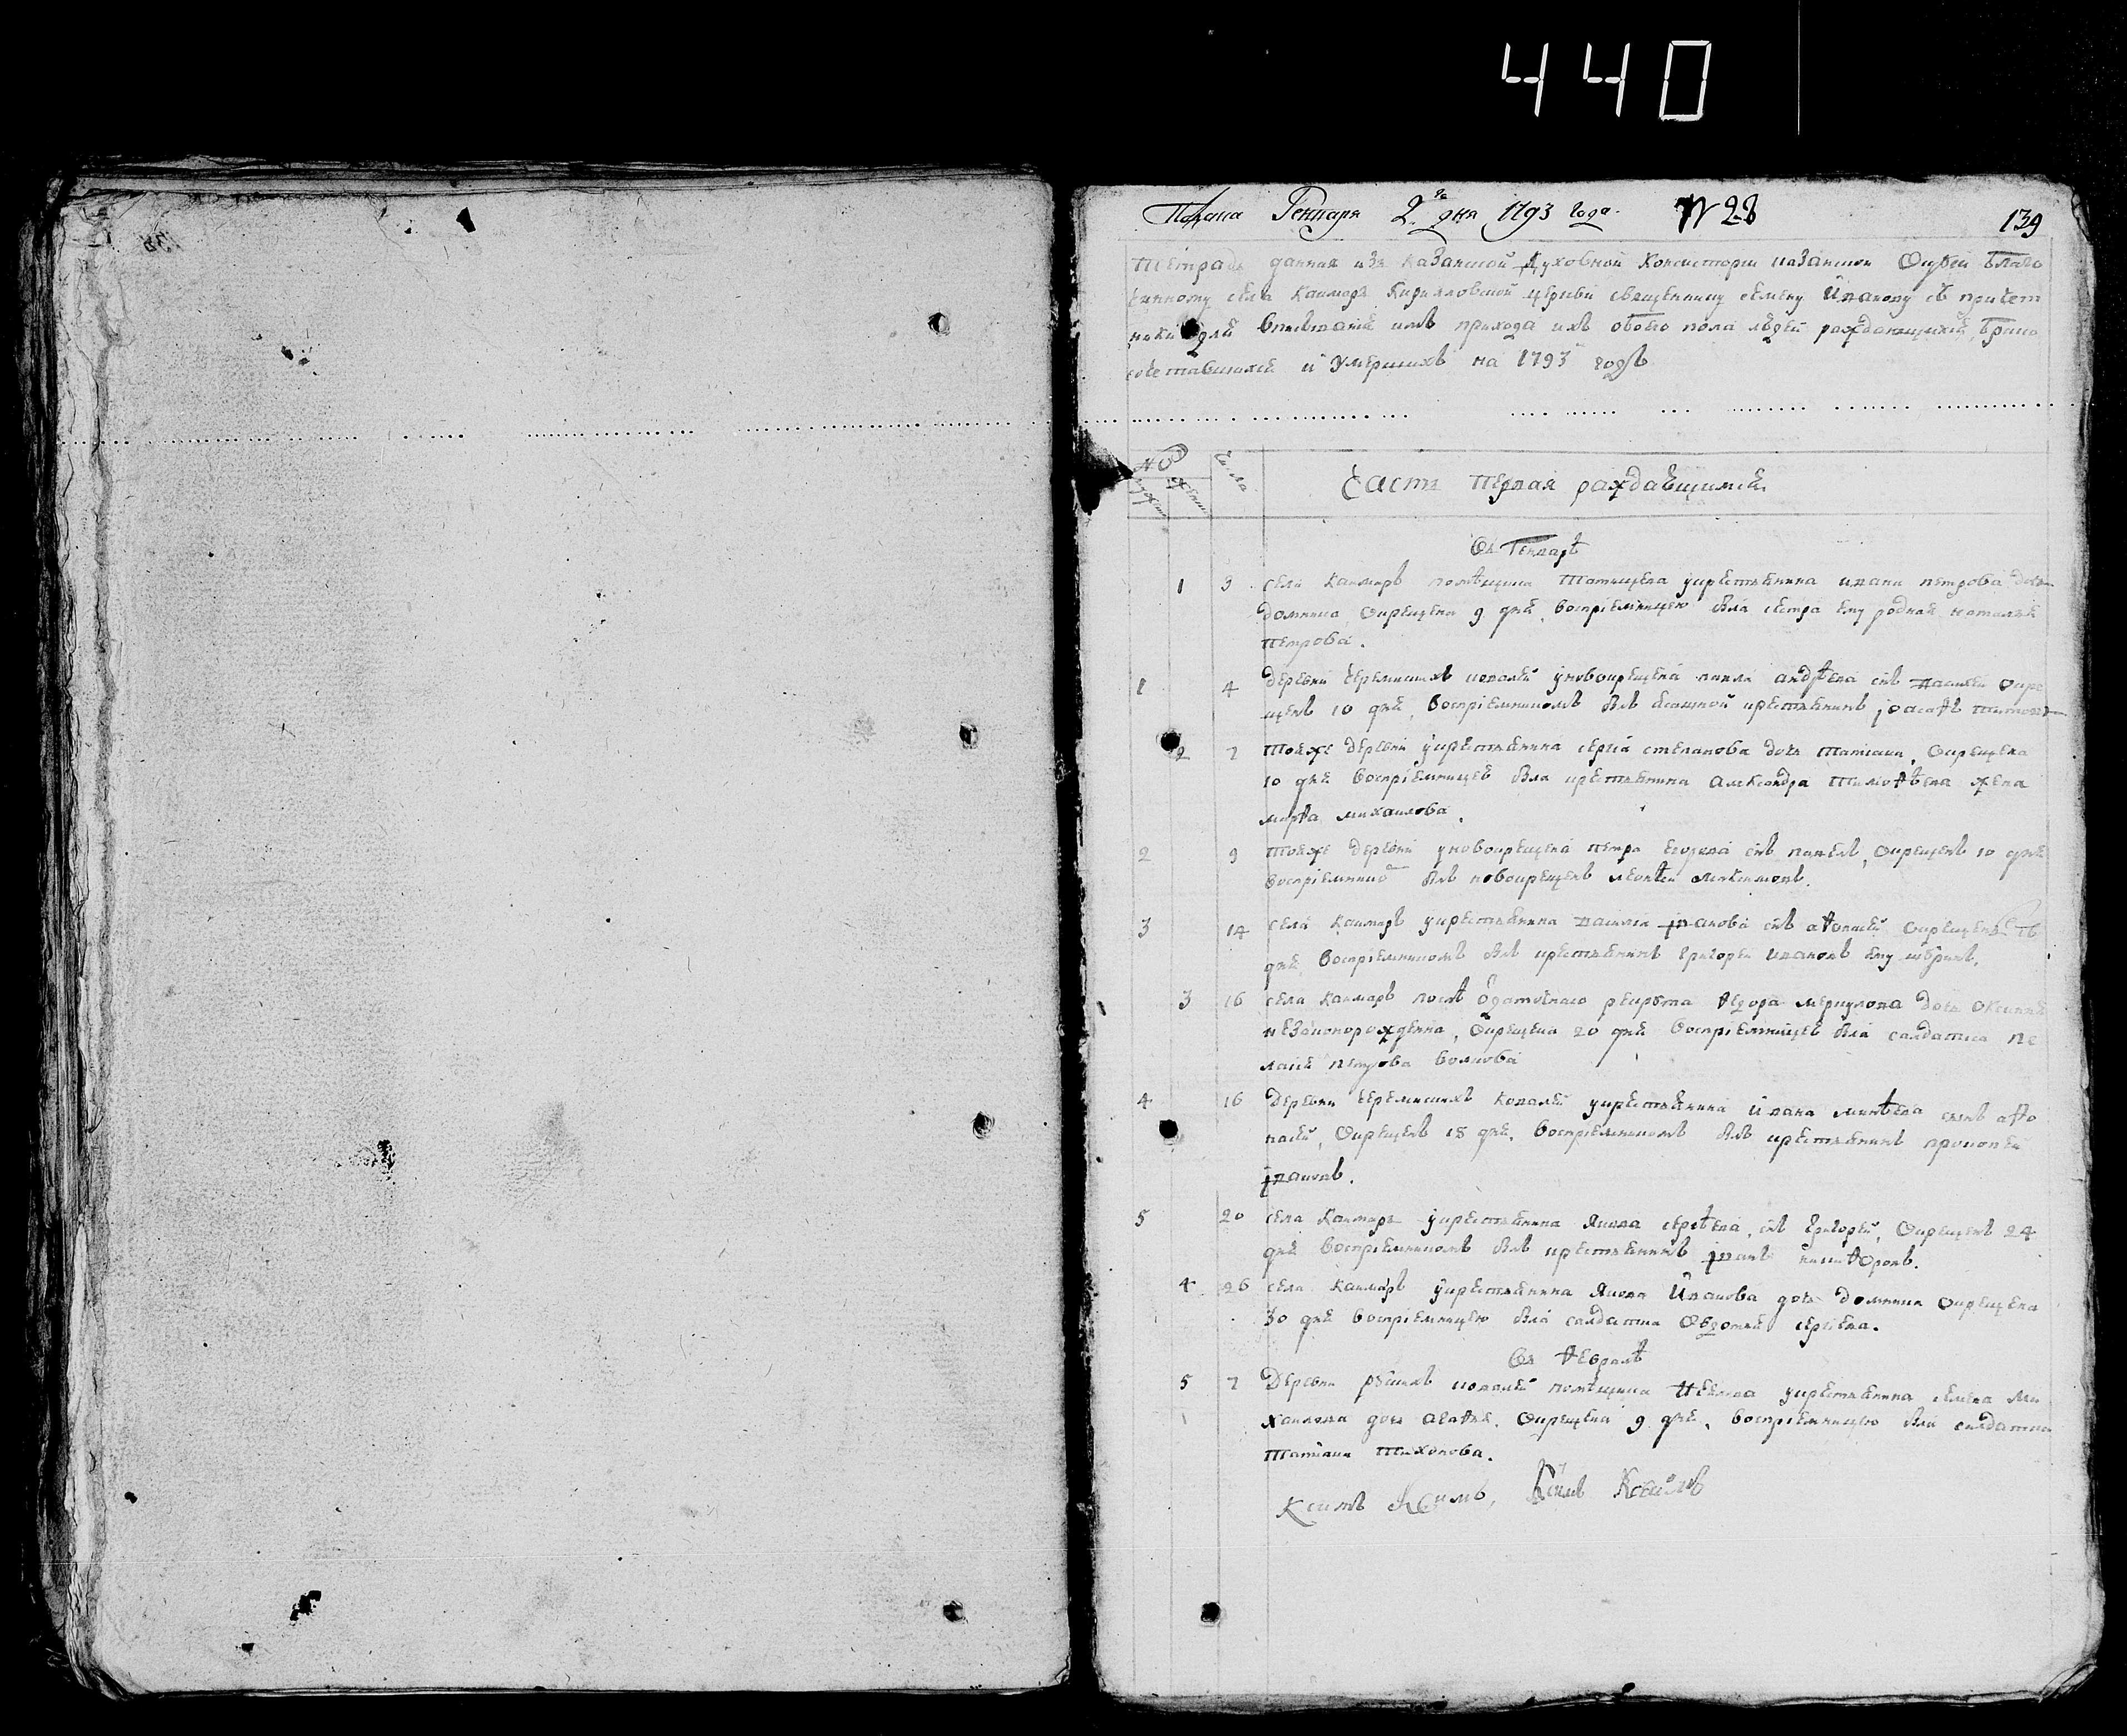 440
Генваря 2 дня 1793 года. № 28
139
Тетрадь данная изъ Казанской духовной консистории казанской благо
чинному села Каймаръ Кирилловской церкви священнику семену Иванову съ причет
ники для вписания имъ прихода ихъ обоего пола людей раждающихся, брако
сочетавшихся и умершихъ на 1793 годъ
№
числа
часть первая раждавшимся
въ Генварѣ
1 3 села Каймаръ помѣщика Татищева укрестьянина ивана петрова дочь
домника, окрещена 9 дня, воспріемницею была сестра ему родная наталья
петрова.
1 4 деревни Черемискихъ ковалей уновокрещена павла андрѣева снъ василеи окре
щенъ 10 дня, воспріемникомъ былъ ясашной крестьянинъ іоасаѳъ титовъ
2 7 тоежъ деревни укрестьянина сергія степанова дочь татиана, окрещена
10 дня воспріемницею была крестьянина александра тимоѳѣева жена
марѳа михаилова.
2 9 тоежъ деревни уновокрещена петра егорова снъ павелъ, окрещенъ 10 дня
воспріемнико былъ новокрещенъ леонтеи максимовъ.
3 14 села Каймаръ укрестьянина василья іванова снъ аѳонасей окрещенъ
дня, воспріемникомъ былъ крестьянинъ григореи ивановъ ему шуринъ.
3 16 села Каймаръ послѣ одаточнаго рекрута ѳедора меркулова дочь оксинья
незаконорожденна, окрещена 20 дня воспріемницею была салдатка пе
лагея петрова волкова
4 16 деревни Черемискихъ ковалей укрестьянина ивана матвѣева сынъ аѳо
насей, окрещенъ 18 дня, воспріемникомъ былъ крестьянинъ прокопеи
івановъ.
5 20 села Каймаръ укрестьянина якова сергѣева, снъ григорей, окрещенъ 24
дня воспріемникомъ былъ крестьянинъ іванъ никиѳоровъ.
4 26 села Каймаръ укрестьянина якова Иванова дочь домника окрещена
30 дня воспріемницею была салдатка сергѣева.
въ ѳевралѣ
5 7 деревни рускихъ ковалей помѣщика укрестьянина семена ми
хаилова дочь агаѳья. окрещена 9 дня, воспріемницею была салдатка
татиана тихонова.